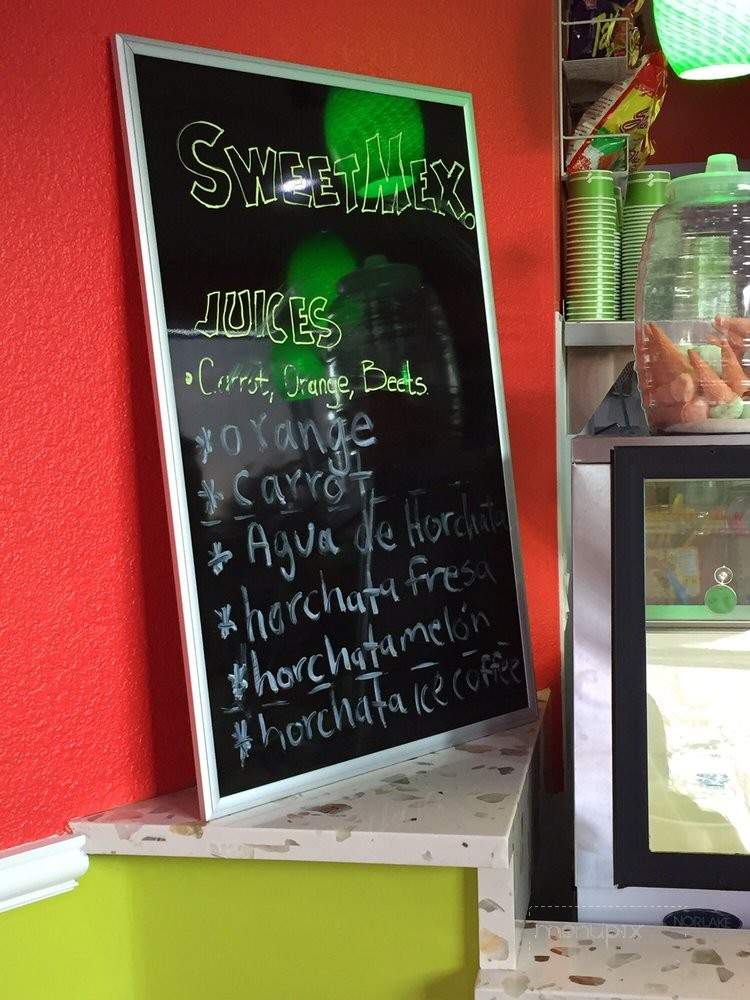 SWEETMEX.
JUICES
• Carrot, Orange, Beets.
* orange
* carrot
* Agua de Horchata
* horchata fresa
* horchata melón
* horchata Ice coffee
NORLAKE
menupix